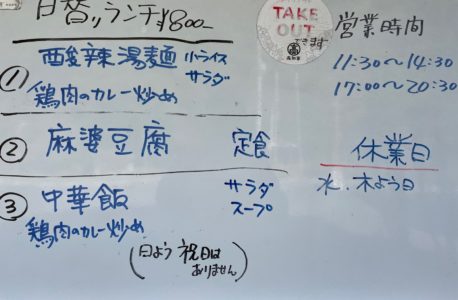 日替リランチ ¥800-
① 酸辣湯麺 小ライス サラダ
鶏肉のカレー炒め
② 麻婆豆腐 定食
③ 中華飯 サラダ スープ
鶏肉のカレー炒め
(日よう 祝日は ありません)
TAKE
OUT
できます
営業時間
11:30〜14:30
17:00〜20:30
休業日
水、木よう日